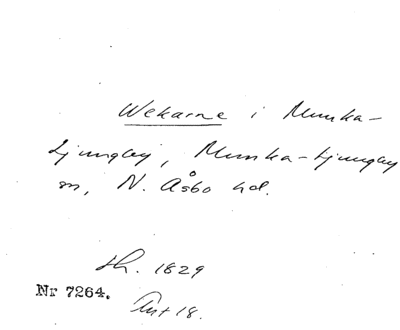 Wekarne i Munka-
Ljungby, Munka-Ljungby
sn, N. Åsbo hd.
1829
Nr 7264.
18.